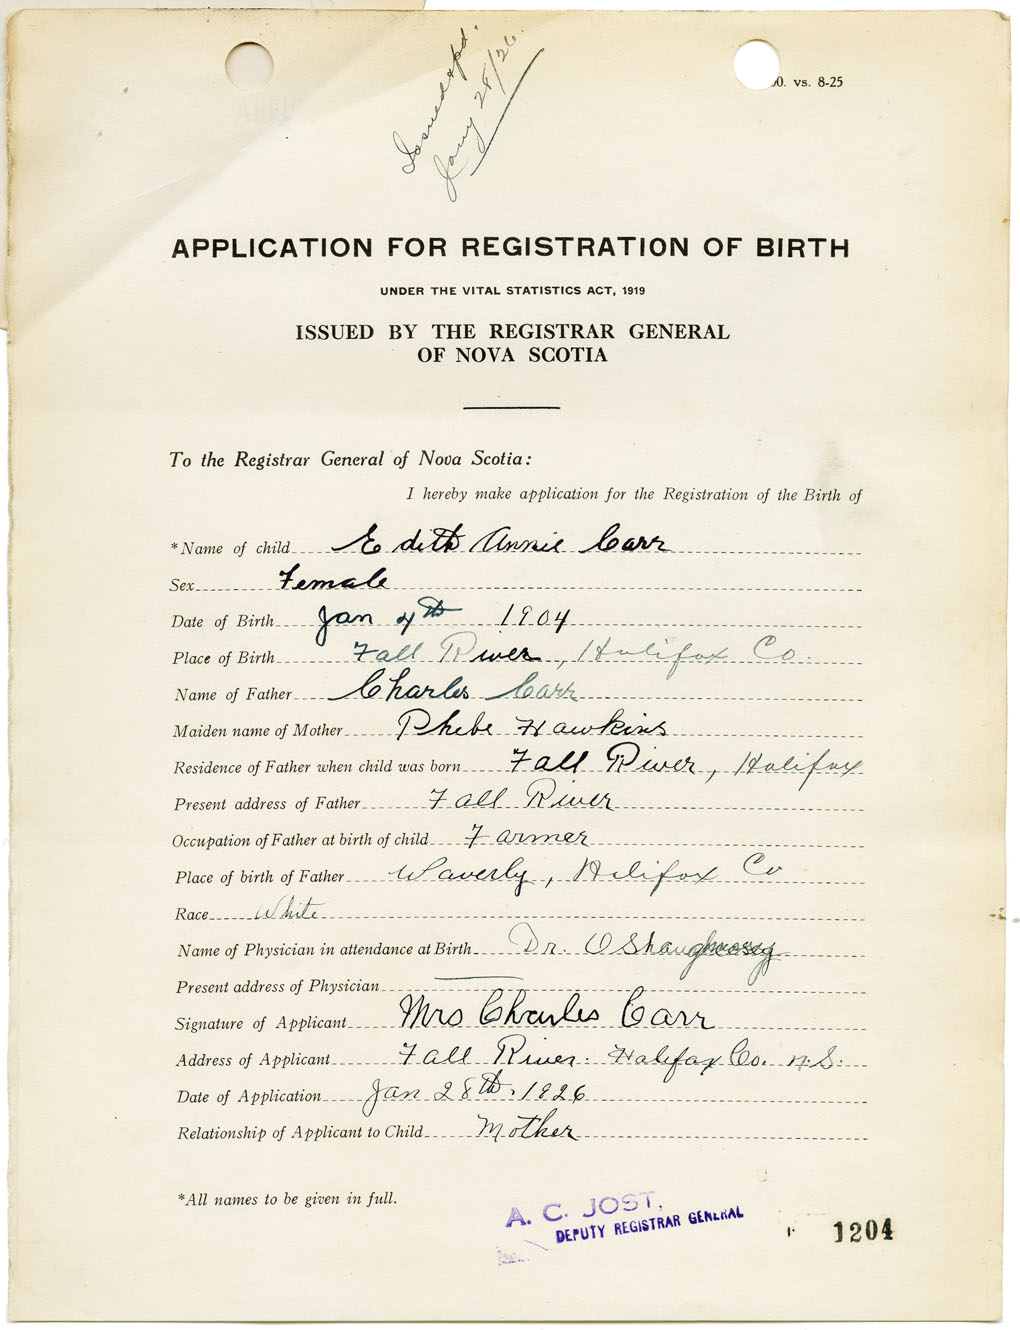 Issued & pd.
Jany 28/26.
00. vs. 8-25
APPLICATION FOR REGISTRATION OF BIRTH
UNDER THE VITAL STATISTICS ACT, 1919
ISSUED BY THE REGISTRAR GENERAL
OF NOVA SCOTIA
To the Registrar General of Nova Scotia:
I hereby make application for the Registration of the Birth of
*Name of child Edith Annie Carr
Sex Female
Date of Birth Jan 4th 1904
Place of Birth Fall River, Halifax Co.
Name of Father Charles Carr
Maiden name of Mother Phebe Hawkins
Residence of Father when child was born Fall River, Halifax
Present address of Father Fall River
Occupation of Father at birth of child Farmer
Place of birth of Father Waverly, Halifax Co
Race White
Name of Physician in attendance at Birth Dr. O Shaughnessy
Present address of Physician
Signature of Applicant Mrs Charles Carr
Address of Applicant Fall River. Halifax Co. N.S.
Date of Application Jan 28th. 1926
Relationship of Applicant to Child Mother
*All names to be given in full.
A. C. JOST,
DEPUTY REGISTRAR GENERAL
1204